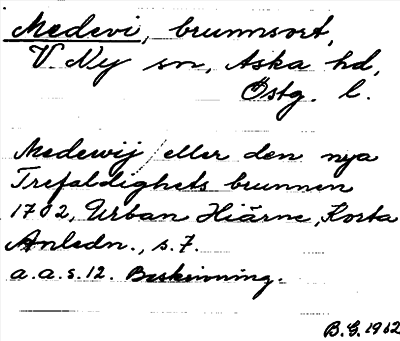 Medevi, brunnsort,
V. Ny sn, Aska hd,
Östg. l.
Medewij eller den nya
Trefaldighets brunnen
1702, Urban Hiärne, Korta
Anledn., s. 7.
a.a.s. 12. Beskrivning.
B.G. 1912